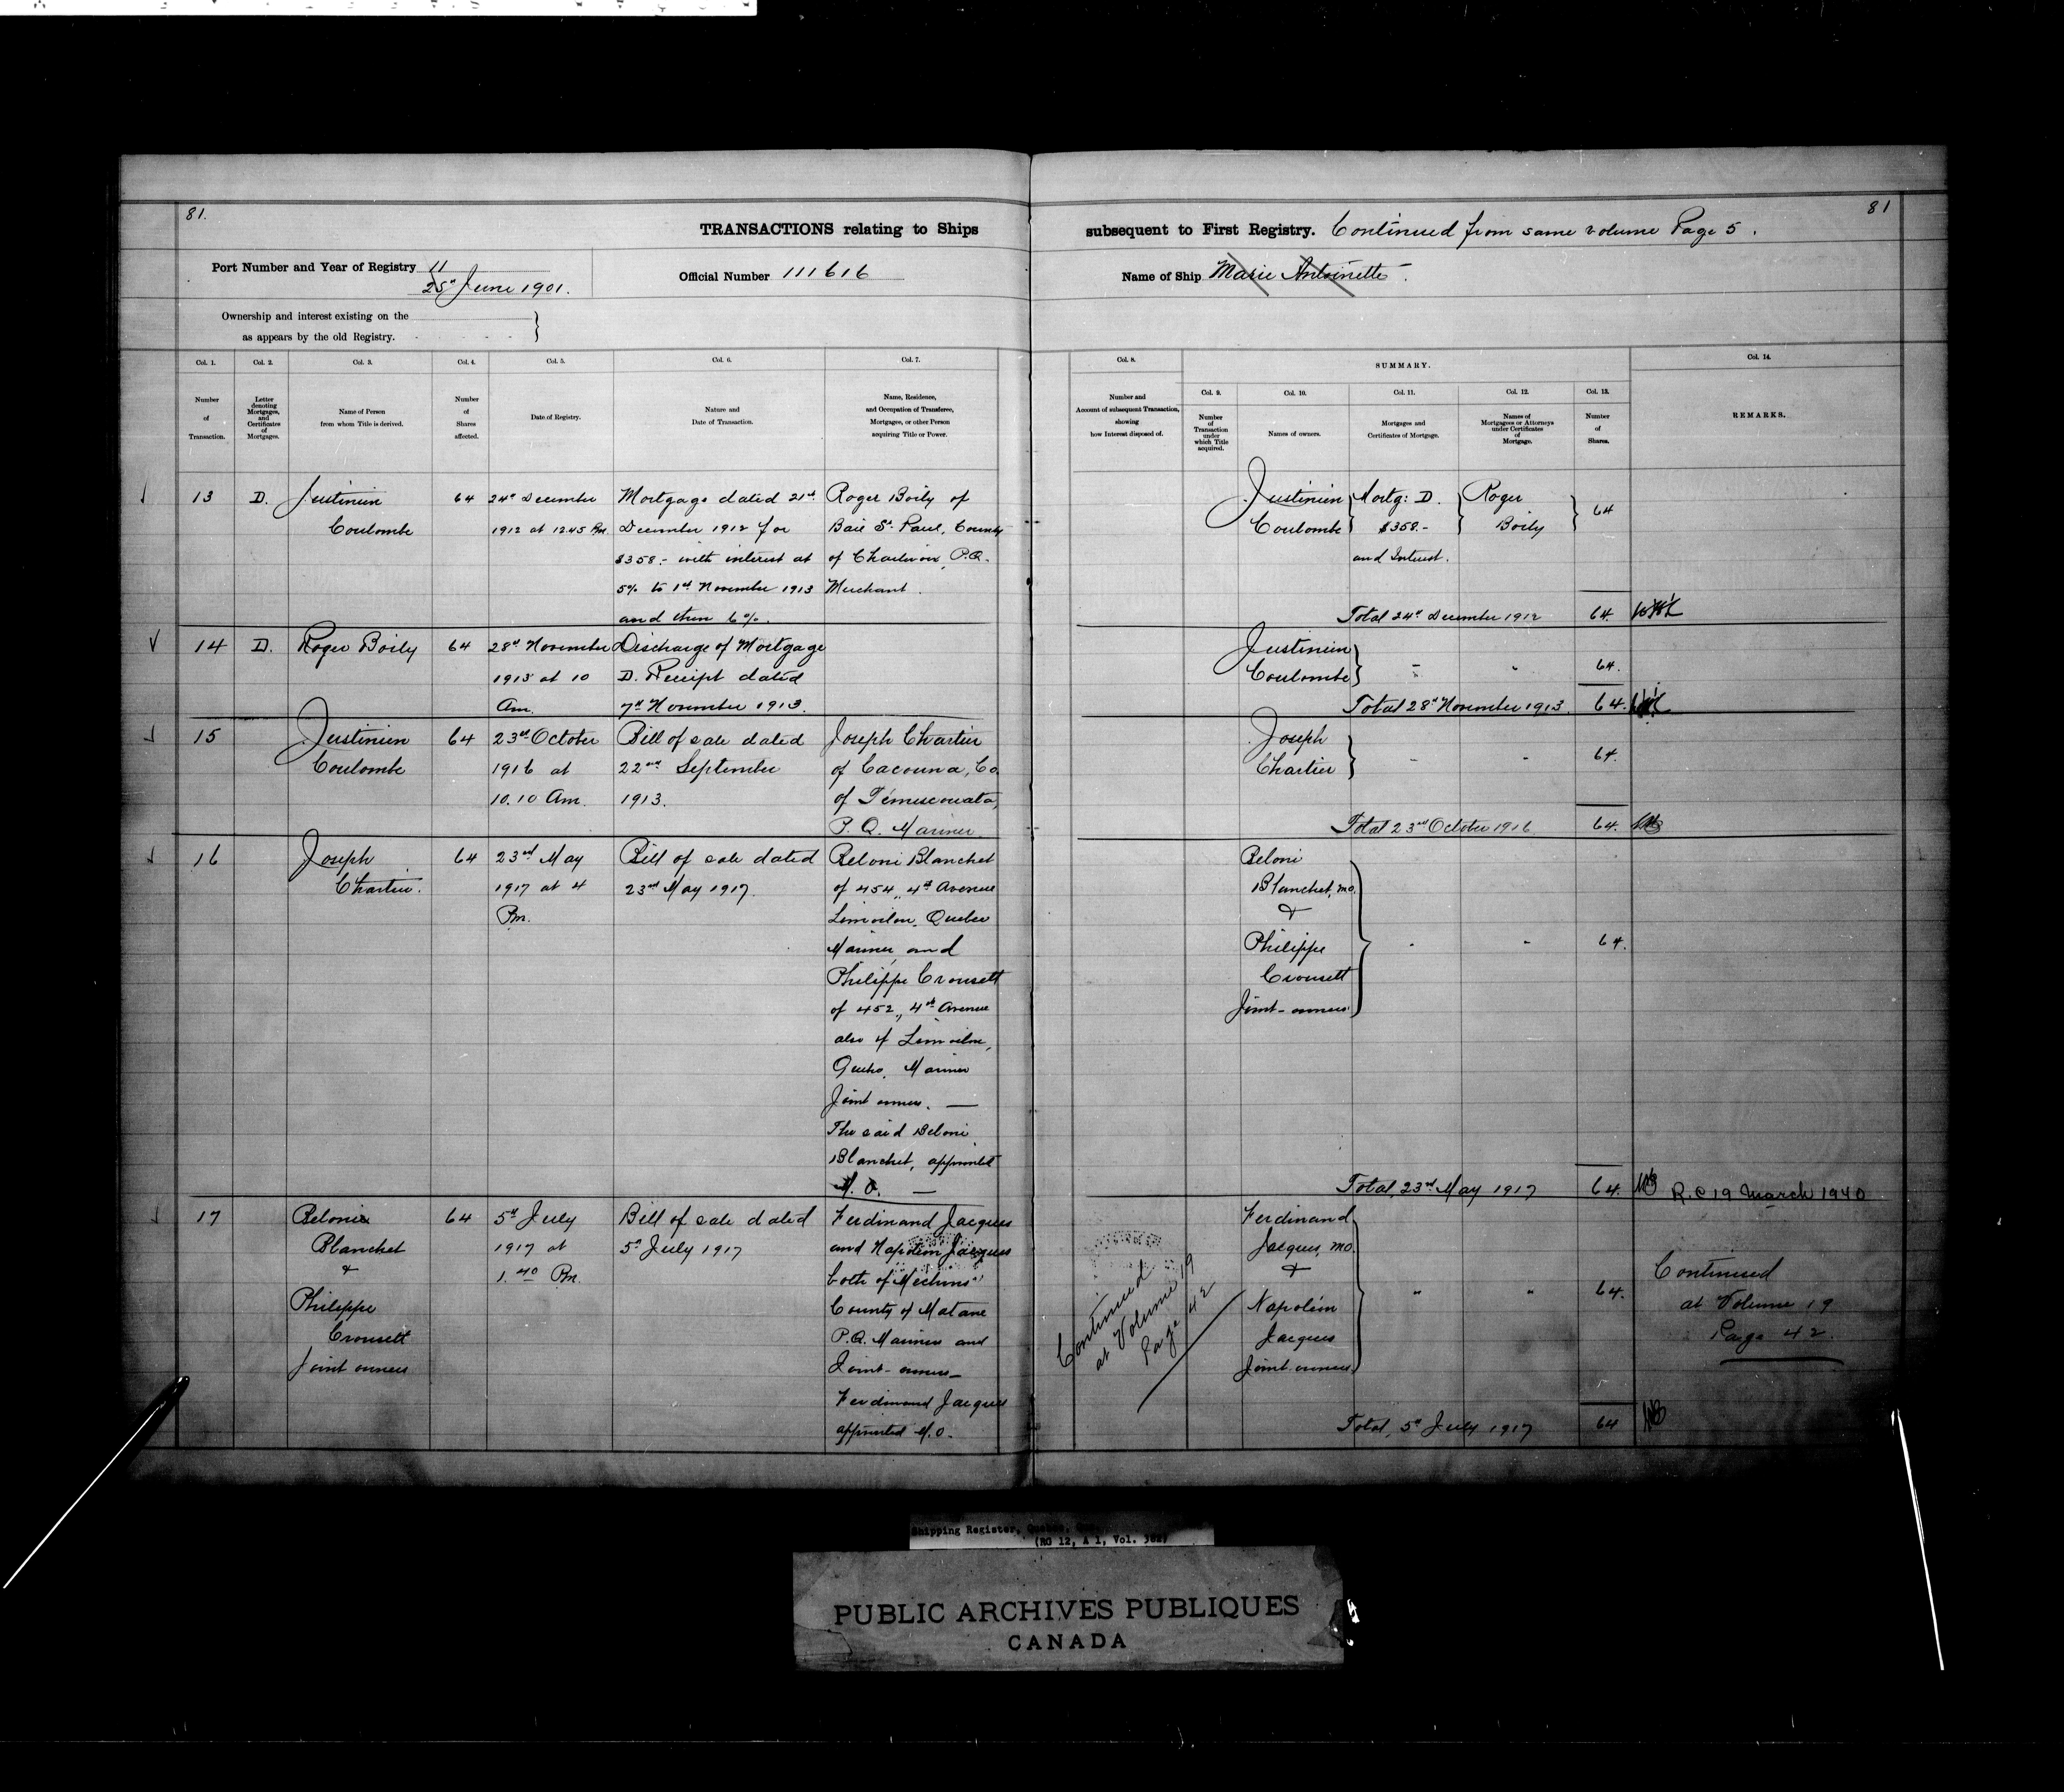 81.
81
TRANSACTIONS relating to Ships
subsequent to First Registry. Continued from same volume Page 5.
Port Number and Year of Registry 11
25th June 1901.
Official Number 111616
Name of Ship Marie Antoinette.
Ownership and interest existing on the
as appears by the old Registry.
Col. 1.
Number
of
Transaction.
Col. 2.
Letter
denoting
Mortgages,
and
Certificates
of
Mortgages.
Col. 3.
Name of Person
from whom Title is derived.
Col. 4.
Number
of
Shares
affected.
Col. 5.
Date of Registry.
Col. 6.
Nature and
Date of Transaction.
Col. 7.
Name, Residence,
and Occupation of Transferee,
Mortgagee, or other Person
acquiring Title or Power.
Col. 8.
Number and
Account of subsequent Transaction,
showing
how Interest disposed of.
SUMMARY.
Col. 9.
Number
of
Transaction
under
which Title
acquired.
Col. 10.
Names of owners.
Col. 11.
Mortgages and
Certificates of Mortgage.
Col. 12.
Names of
Mortgagees or Attorneys
under Certificates
of
Mortgage.
Col. 13.
Number
of
Shares.
Col. 14.
REMARKS.
13
D.
Justinien
Coulombe
64
24th December
1912 at 12.45 Pm.
Mortgage dated 21st
December 1912 for
$358.- with interest at
5% to 1st November 1913
and then 6%.
Roger Boily of
Baie St. Paul, County
of Charlevoix, P.Q.
Merchant.
Justinien
Coulombe
Mortg: D.
$358.-
and Interest.
Roger
Boily
64
Total 24th December 1912
64.
14
D.
Roger Boily
64
28th November
1913 at 10
Am.
Discharge of Mortgage
D. Receipt dated
7th November 1913.
Justinien
Coulombe
64.
Total 28th November 1913.
64.
15
Justinien
Coulombe
64
23rd October
1916 at
10.10 Am.
Bill of sale dated
22nd September
1913.
Joseph Chartier
of Cacouna, Co.
of Témiscouata,
P.Q. Mariner.
Joseph
Chartier
64.
Total 23rd October 1916
64.
16
Joseph
Chartier.
64
23rd May
1917 at 4
Pm.
Bill of sale dated
23rd May 1917.
Beloni Blanchet
of 454, 4th Avenue
Limoilou, Quebec
Mariner, and
Philippe Crousett
of 452, 4th Avenue
also of Limoilou,
Quebec, Mariner
Joint owners. —
The said Beloni
Blanchet, appointed
M. O. —
Beloni
Blanchet, M.O.
&
Philippe
Crousett
Joint-owners
64.
Total, 23rd May 1917
64.
R.C 19 March 1940
17
Belonie
Blanchet
&
Philippe
Crousett
Joint owners
64
5th July
1917 at
1.40 Pm.
Bill of sale dated
5th July 1917
Ferdinand Jacques
and Napoléon Jacques
both of Mechins
County of Matane
P.Q. Mariners and
Joint-owners—
Ferdinand Jacques
appointed M.O.
Continued
at Volume 19
Page 42
Ferdinand
Jacques, M.O.
&
Napoléon
Jacques
Joint-owners
64.
Total, 5th July 1917
64
Continued
at Volume 19
Page 42.
Shipping Register,
(RG 12, A 1, Vol.
PUBLIC ARCHIVES PUBLIQUES
CANADA